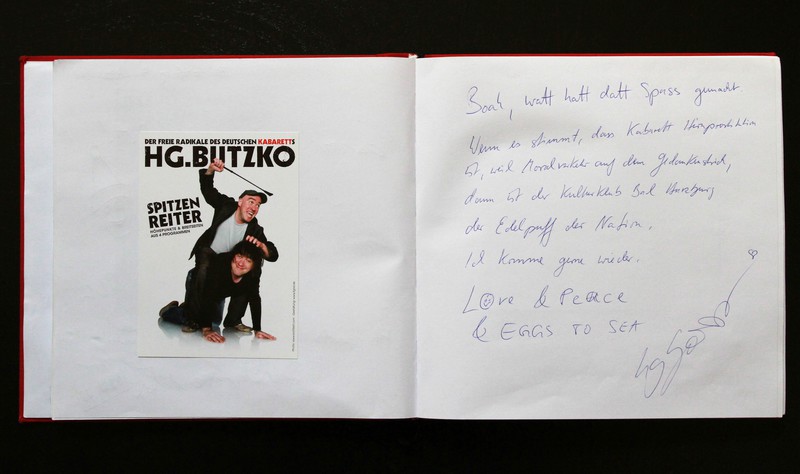 DER FREIE RADIKALE DES DEUTSCHEN KABARETTS
HG.BUTZKO
SPITZEN
REITER
HÖHEPUNKTE & BREITSEITEN
AUS 4 PROGRAMMEN
Boah, watt hatt datt Spass gemacht
Wenn es stimmt, dass Kabarett
ist, weil Moralverkehr auf dem Gedankenstrich,
dann ist der Kulturklub Bad Harzburg
der Edelpuff der Nation.
Ich komme gerne wieder.
Love & Peace
& EGGS TO SEA